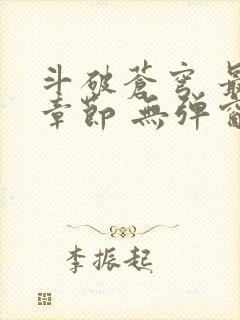 斗破蒼穹 最
章節 無弹窗
李振起